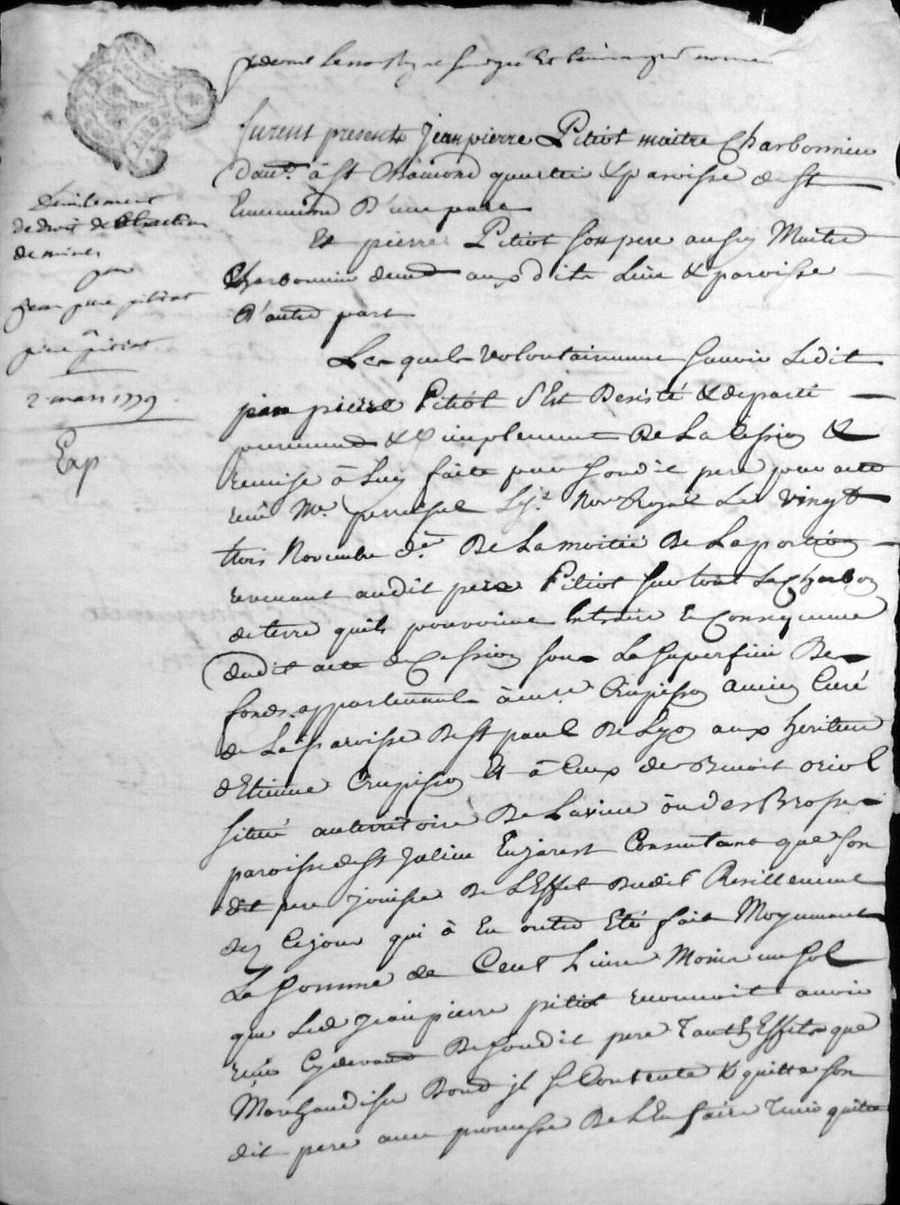 furent presents Jean pierre Pitiot maitre Charbonnier
dem.t à St Chamond quartier & paroisse de St
Ennemond d'une part
Et pierre Pitiot son pere aussy Maitre
Charbonnier demt aux dits Lieu & paroisse
D'autre part
Desistement
de droit d'Extraction
de mines
par
Jean pierre pitiot
à
pierre pitiot
2 mars 1779
Exp
Lesquels volontairement savoir Ledit
jean pierre Pitiot s'Est Desisté & departi
purement & simplement De La Cession &
remise à Luy faite par sondit pere par acte
reçu Me. Notre Royal Le vingt
trois Novembre d.er De La moitié De La portion
revenant audit pere Pitiot sur tout Le Charbon
de terre qu'ils pouvoient Extraire En Consequence
dudit acte de Cession sous La Superficie De
fonds appartenants à Crupisson ancien Curé
de La paroisse De St paul De Lyon aux heritiers
d'Etienne Crupisson Et à Ceux de Benoit oriol
situé au territoire De Lavieu ou des Brosses
paroisse de St Julien En jarest Consentant que son
dit pere jouisse De L'Effet dudit Resiliement
dez Cejour qui à En outre Eté fait Moyennant
La somme de Cent Livres Moins un sol
que Led Jean pierre pitiot reconnoit avoir
reçu Cydevant De sondit pere tant En Effets que
Marchandises Dond jl se Contente & quitte son
dit pere avec promesse De L'En faire tenir quitte